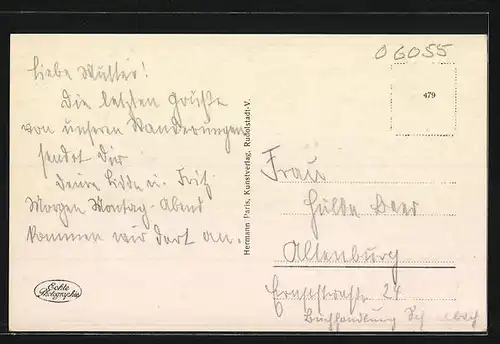 06055
479
Liebe Mutter!
Die letzten Grüße
von unseren Wanderungen
sendet Dir
Deine Lidde u. Fritz
Morgen Montag-Abend
kommen wir dort an.
Hermann Paris, Kunstverlag, Rudolstadt-V.
Frau
Hulda Beer
Altenburg
Ernststrasse 24
Buchhandlung
Echte
Photographie